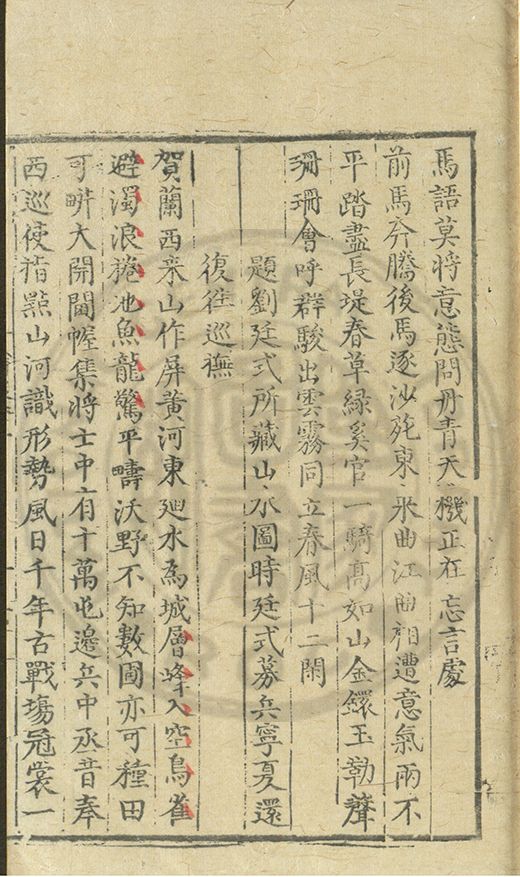 馬語莫將意態問丹青天機正在忘言處
前馬奔騰後馬逐沙苑東來曲江曲相遭意氣兩不
平踏盡長堤春草綠奚官一騎高如山金鐶玉勒聲
珊珊會呼群駿出雲霧同立春風十二閑
題劉廷式所藏山水圖時廷式募兵寧夏還
復徃巡撫
賀蘭西来山作屏黄河東廻水為城層峰入空鳥雀
避濁浪捲池魚龍驚平疇沃野不知數園亦可種田
可畊大開閫幄集將士中有十萬屯邊兵中丞昔奉
西巡使指㸃山河識形勢風日千年古戰塲冠裳一